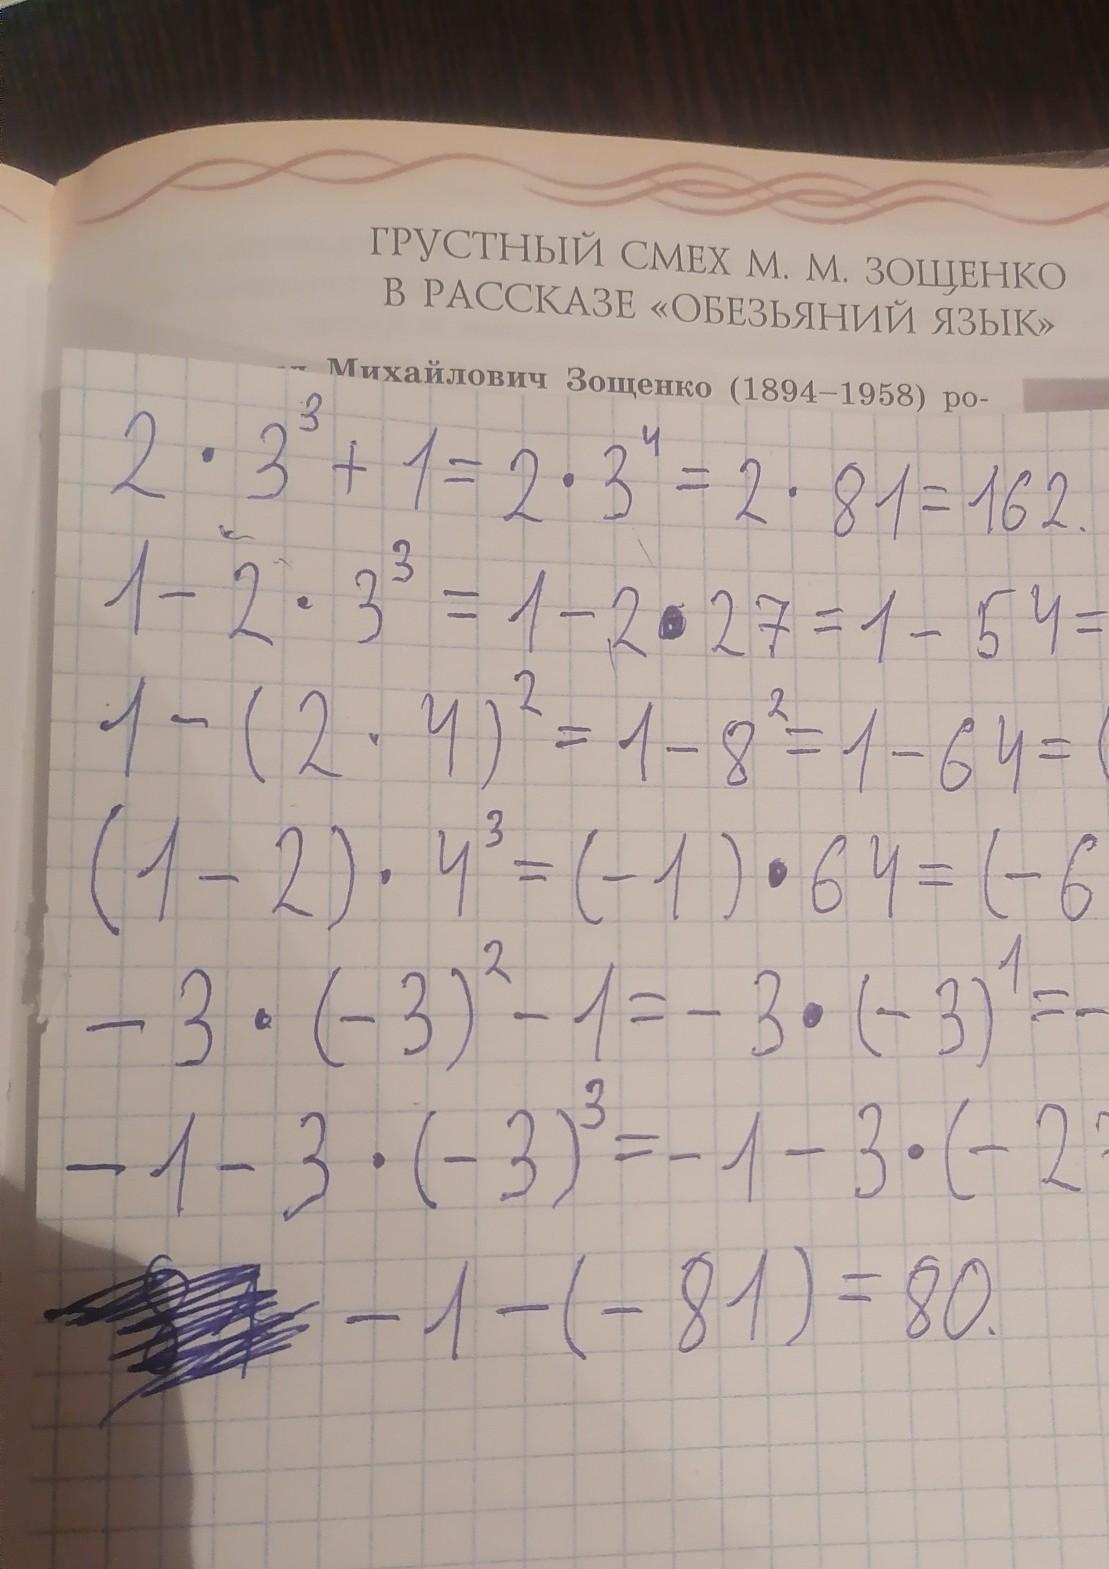 ГРУСТНЫЙ СМЕХ М. М. ЗОЩЕНКО
В РАССКАЗЕ «ОБЕЗЬЯНИЙ ЯЗЫК»
Михайлович Зощенко (1894–1958) ро-
2 · 3³ + 1 = 2 · 3⁴ = 2 · 81 = 162.
1 - 2 · 3³ = 1 - 2 · 27 = 1 - 54 =
1 - (2 · 4)² = 1 - 8² = 1 - 64 = (
(1 - 2) · 4³ = (-1) · 64 = (-6
- 3 · (-3)² - 1 = - 3 · (-3)¹ = -
- 1 - 3 · (-3)³ = - 1 - 3 · (-2
- 1 - (-81) = 80.